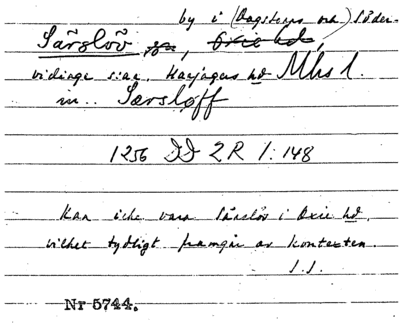 by i (Dagstorps och) Söder-
Särslöv sn, Oxie hd,
vidinge s:ar. Harjagers hd Mhs l.
in.. Særsløff
1256 DD 2R 1:148
Kan icke vara Särslöv i Oxie hd,
vilket tydligt framgår av kontexten.
Nr 5744.